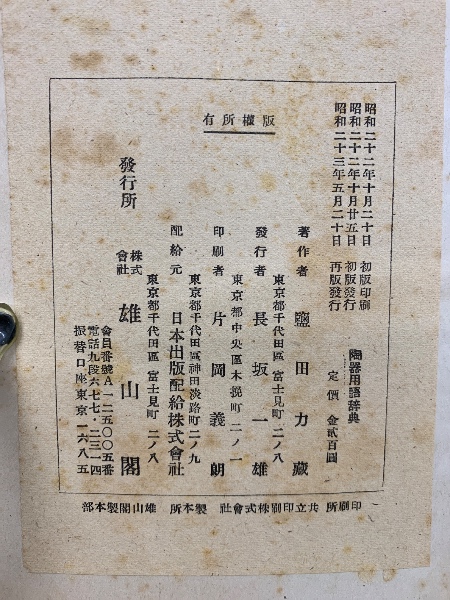 昭和二十二年十月二十日 初版印刷
昭和二十二年十月廿五日 初版發行
昭和二十三年五月二十日 再版發行
陶器用語辞典
定價 金貳百圓
版權所有
著作者 鹽田力藏
東京都千代田區富士見町二ノ八
發行者 長坂一雄
東京都中央區木挽町二ノ一
印刷者 片岡義朗
東京都千代田區神田淡路町二ノ九
配給元 日本出版配給株式會社
東京都千代田區富士見町二ノ八
發行所 株式會社 雄山閣
會員番號A一二五〇〇五番
電話九段六七七・二三一四
振替口座東京一六八五
印刷所 共立印刷株式會社 製本所 雄山閣製本部